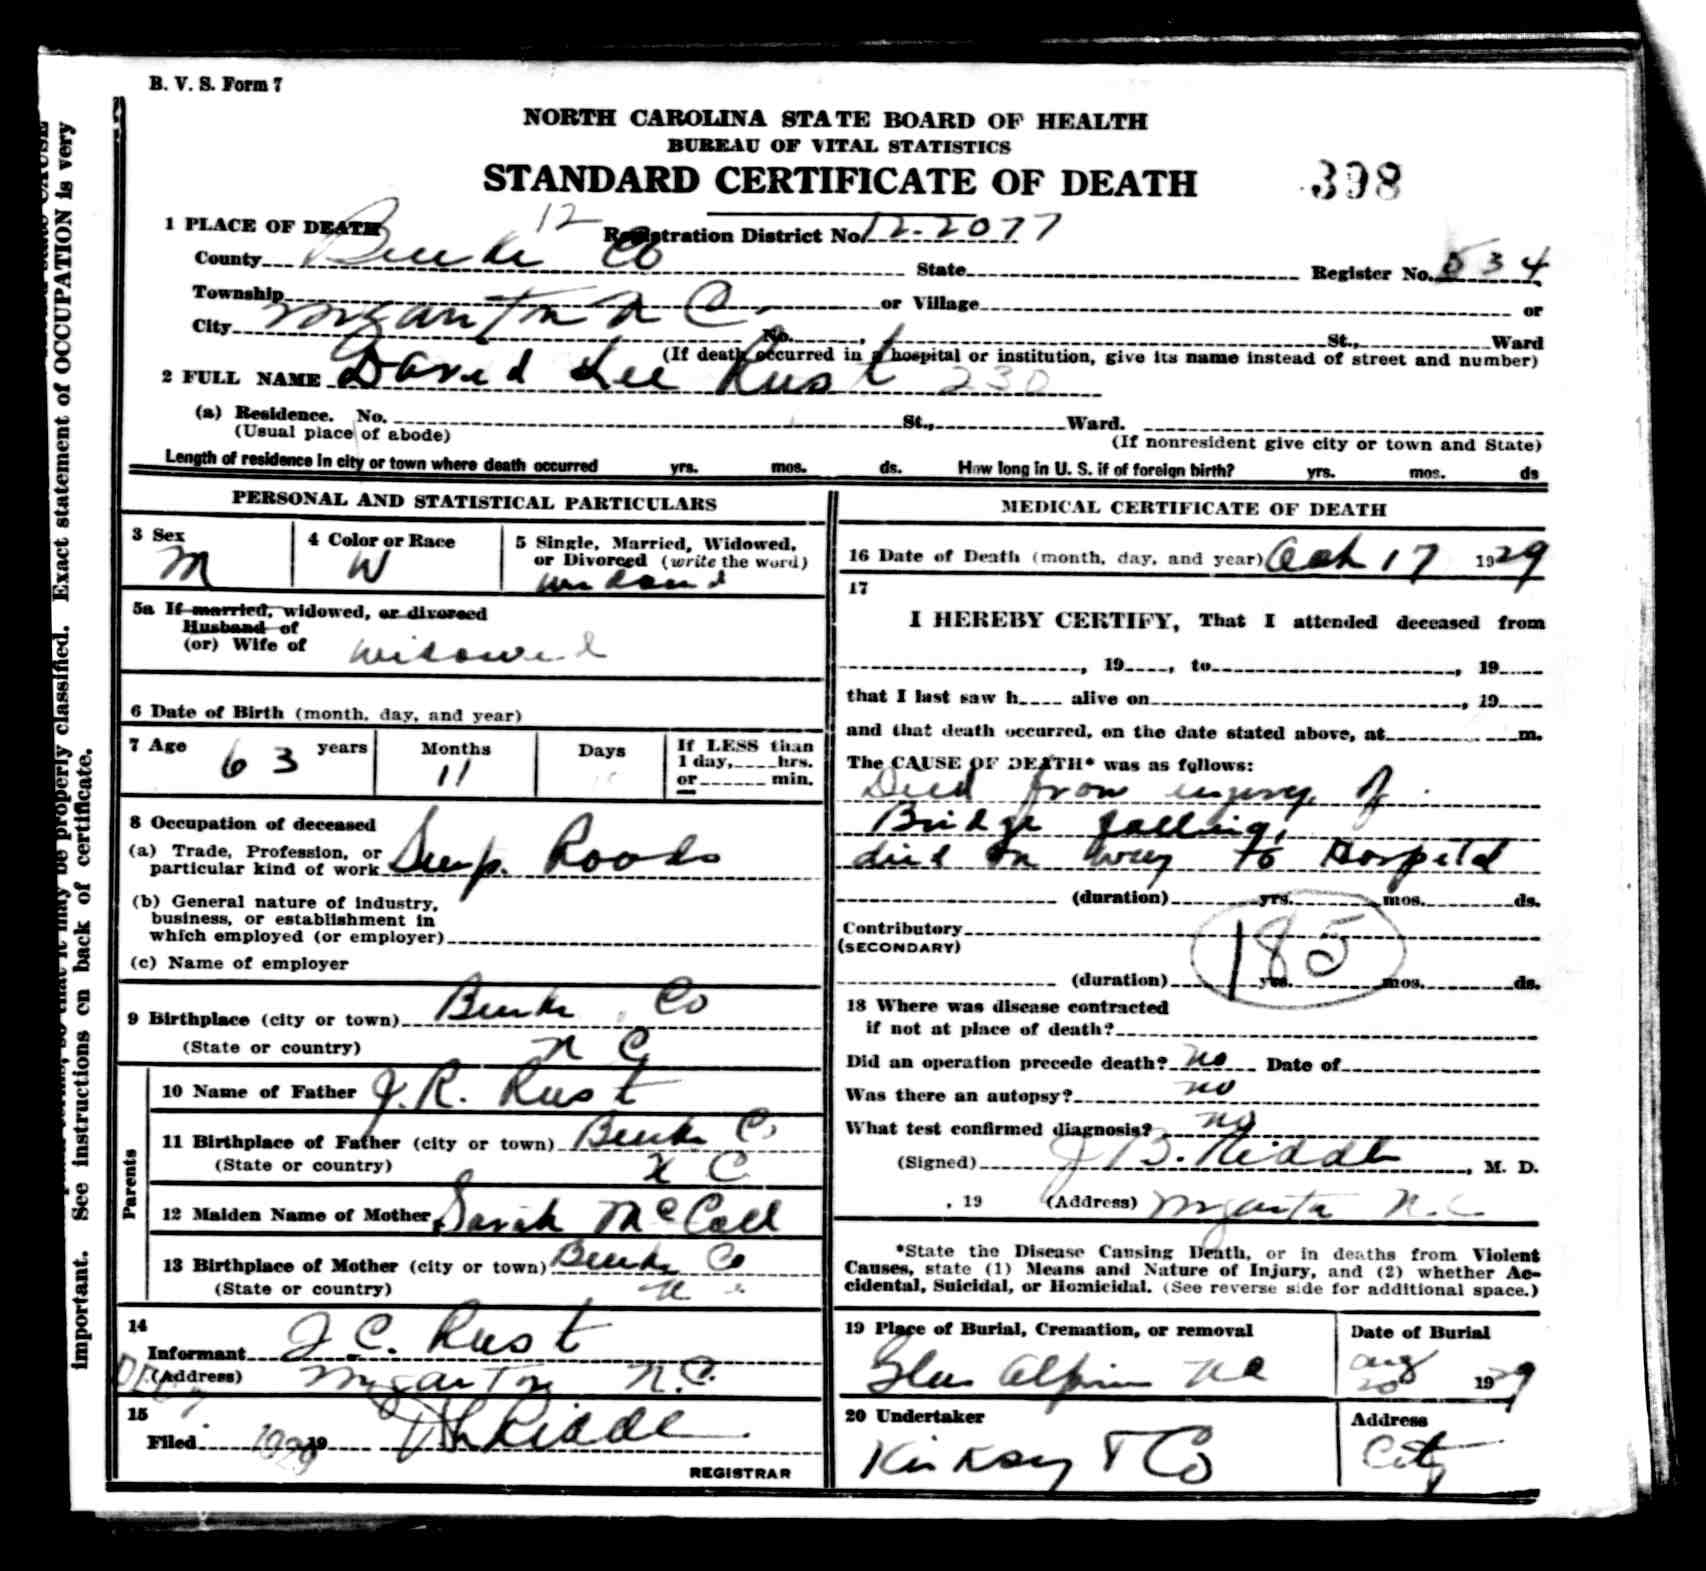 B. V. S. Form 7
NORTH CAROLINA STATE BOARD OF HEALTH
BUREAU OF VITAL STATISTICS
STANDARD CERTIFICATE OF DEATH 398
1 PLACE OF DEATH 12 Registration District No. 12-2077
County Burke Co State Register No. 534
Township or Village or
City Morganton N C No. , St., Ward
(If death occurred in a hospital or institution, give its name instead of street and number)
2 FULL NAME David Lee Rust 230
(a) Residence. No. St., Ward.
(Usual place of abode) (If nonresident give city or town and State)
Length of residence in city or town where death occurred yrs. mos. ds. How long in U. S. if of foreign birth? yrs. mos. ds
PERSONAL AND STATISTICAL PARTICULARS
3 Sex M
4 Color or Race W
5 Single, Married, Widowed,
or Divorced (write the word)
widowed
5a If married, widowed, or divorced
Husband of
(or) Wife of widowed
6 Date of Birth (month, day, and year)
7 Age 63 years Months 11 Days If LESS than
1 day, hrs.
or min.
8 Occupation of deceased
(a) Trade, Profession, or
particular kind of work Sup. Roads
(b) General nature of industry,
business, or establishment in
which employed (or employer)
(c) Name of employer
9 Birthplace (city or town) Burke Co
(State or country) N C
Parents
10 Name of Father J. R. Rust
11 Birthplace of Father (city or town) Burke Co
(State or country) N C
12 Maiden Name of Mother Sarah McCall
13 Birthplace of Mother (city or town) Burke Co
(State or country) N C
14
Informant J. C. Rust
(Address) Morganton N. C.
15
Filed 1929 19 Riddle
REGISTRAR
MEDICAL CERTIFICATE OF DEATH
16 Date of Death (month, day, and year) 17 1929
17
I HEREBY CERTIFY, That I attended deceased from
, 19 , to , 19
that I last saw h alive on , 19
and that death occurred, on the date stated above, at m.
The CAUSE OF DEATH* was as follows:
Died from injury of
Bridge falling,
died on way to Hospital
(duration) yrs. mos. ds.
Contributory
(SECONDARY) 185
(duration) yrs. mos. ds.
18 Where was disease contracted
if not at place of death?
Did an operation precede death? no Date of
Was there an autopsy? no
What test confirmed diagnosis? no
(Signed) J B. Riddle , M. D.
, 19 (Address) Morganton N. C.
*State the Disease Causing Death, or in deaths from Violent
Causes, state (1) Means and Nature of Injury, and (2) whether Ac-
cidental, Suicidal, or Homicidal. (See reverse side for additional space.)
19 Place of Burial, Cremation, or removal
Glen Alpine N C
Date of Burial
Aug
20 1929
20 Undertaker
Kirksey & Co
Address
City
OCCUPATION is very
important. Exact statement of
properly classified.
See instructions on back of certificate.